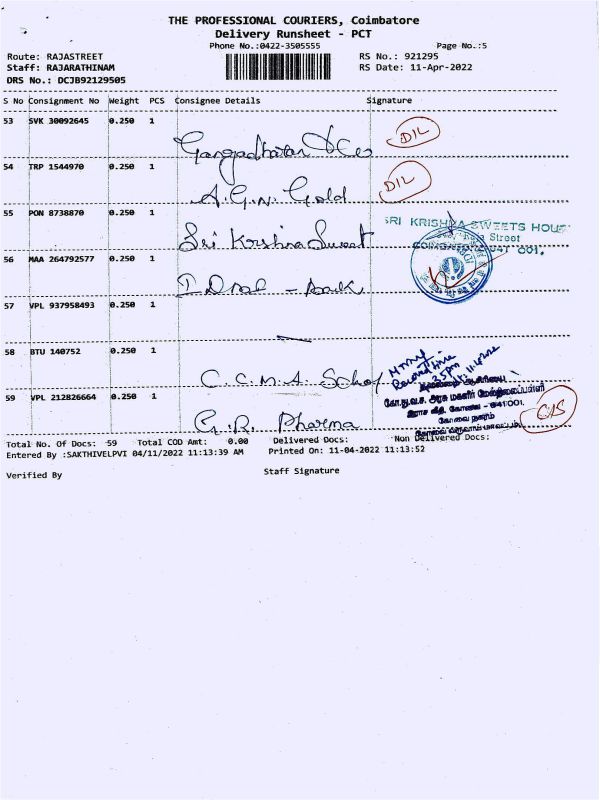 THE PROFESSIONAL COURIERS, Coimbatore
Delivery Runsheet - PCT
Phone No.:0422-3505555 Page No.:5
Route: RAJASTREET RS No.: 921295
Staff: RAJARATHINAM RS Date: 11-Apr-2022
DRS No.: DCJB92129505
S No Consignment No Weight PCS Consignee Details Signature
53 SVK 30092645 0.250 1
Gangadharan & Co D/L
54 TRP 1544970 0.250 1
A.G.N. Gold D/L
55 PON 8738870 0.250 1
SRI KRISHNA SWEETS HOUSE
Sri Krishna Sweet Street
56 MAA 264792577 0.250 1
57 VPL 937958493 0.250 1
58 BTU 140752 0.250 1
C.C.M.A. School
தலைமை ஆசிரியை
59 VPL 212826664 0.250 1
அரசு மகளிர் மேல்நிலைப்பள்ளி
ராஜ வீதி, கோவை - 641001.
கோவை நகரம்
G.R. Pharma
Total No. Of Docs: 59 Total COD Amt: 0.00 Delivered Docs: Non Delivered Docs:
Entered By :SAKTHIVELPVI 04/11/2022 11:13:39 AM Printed On: 11-04-2022 11:13:52
Verified By Staff Signature